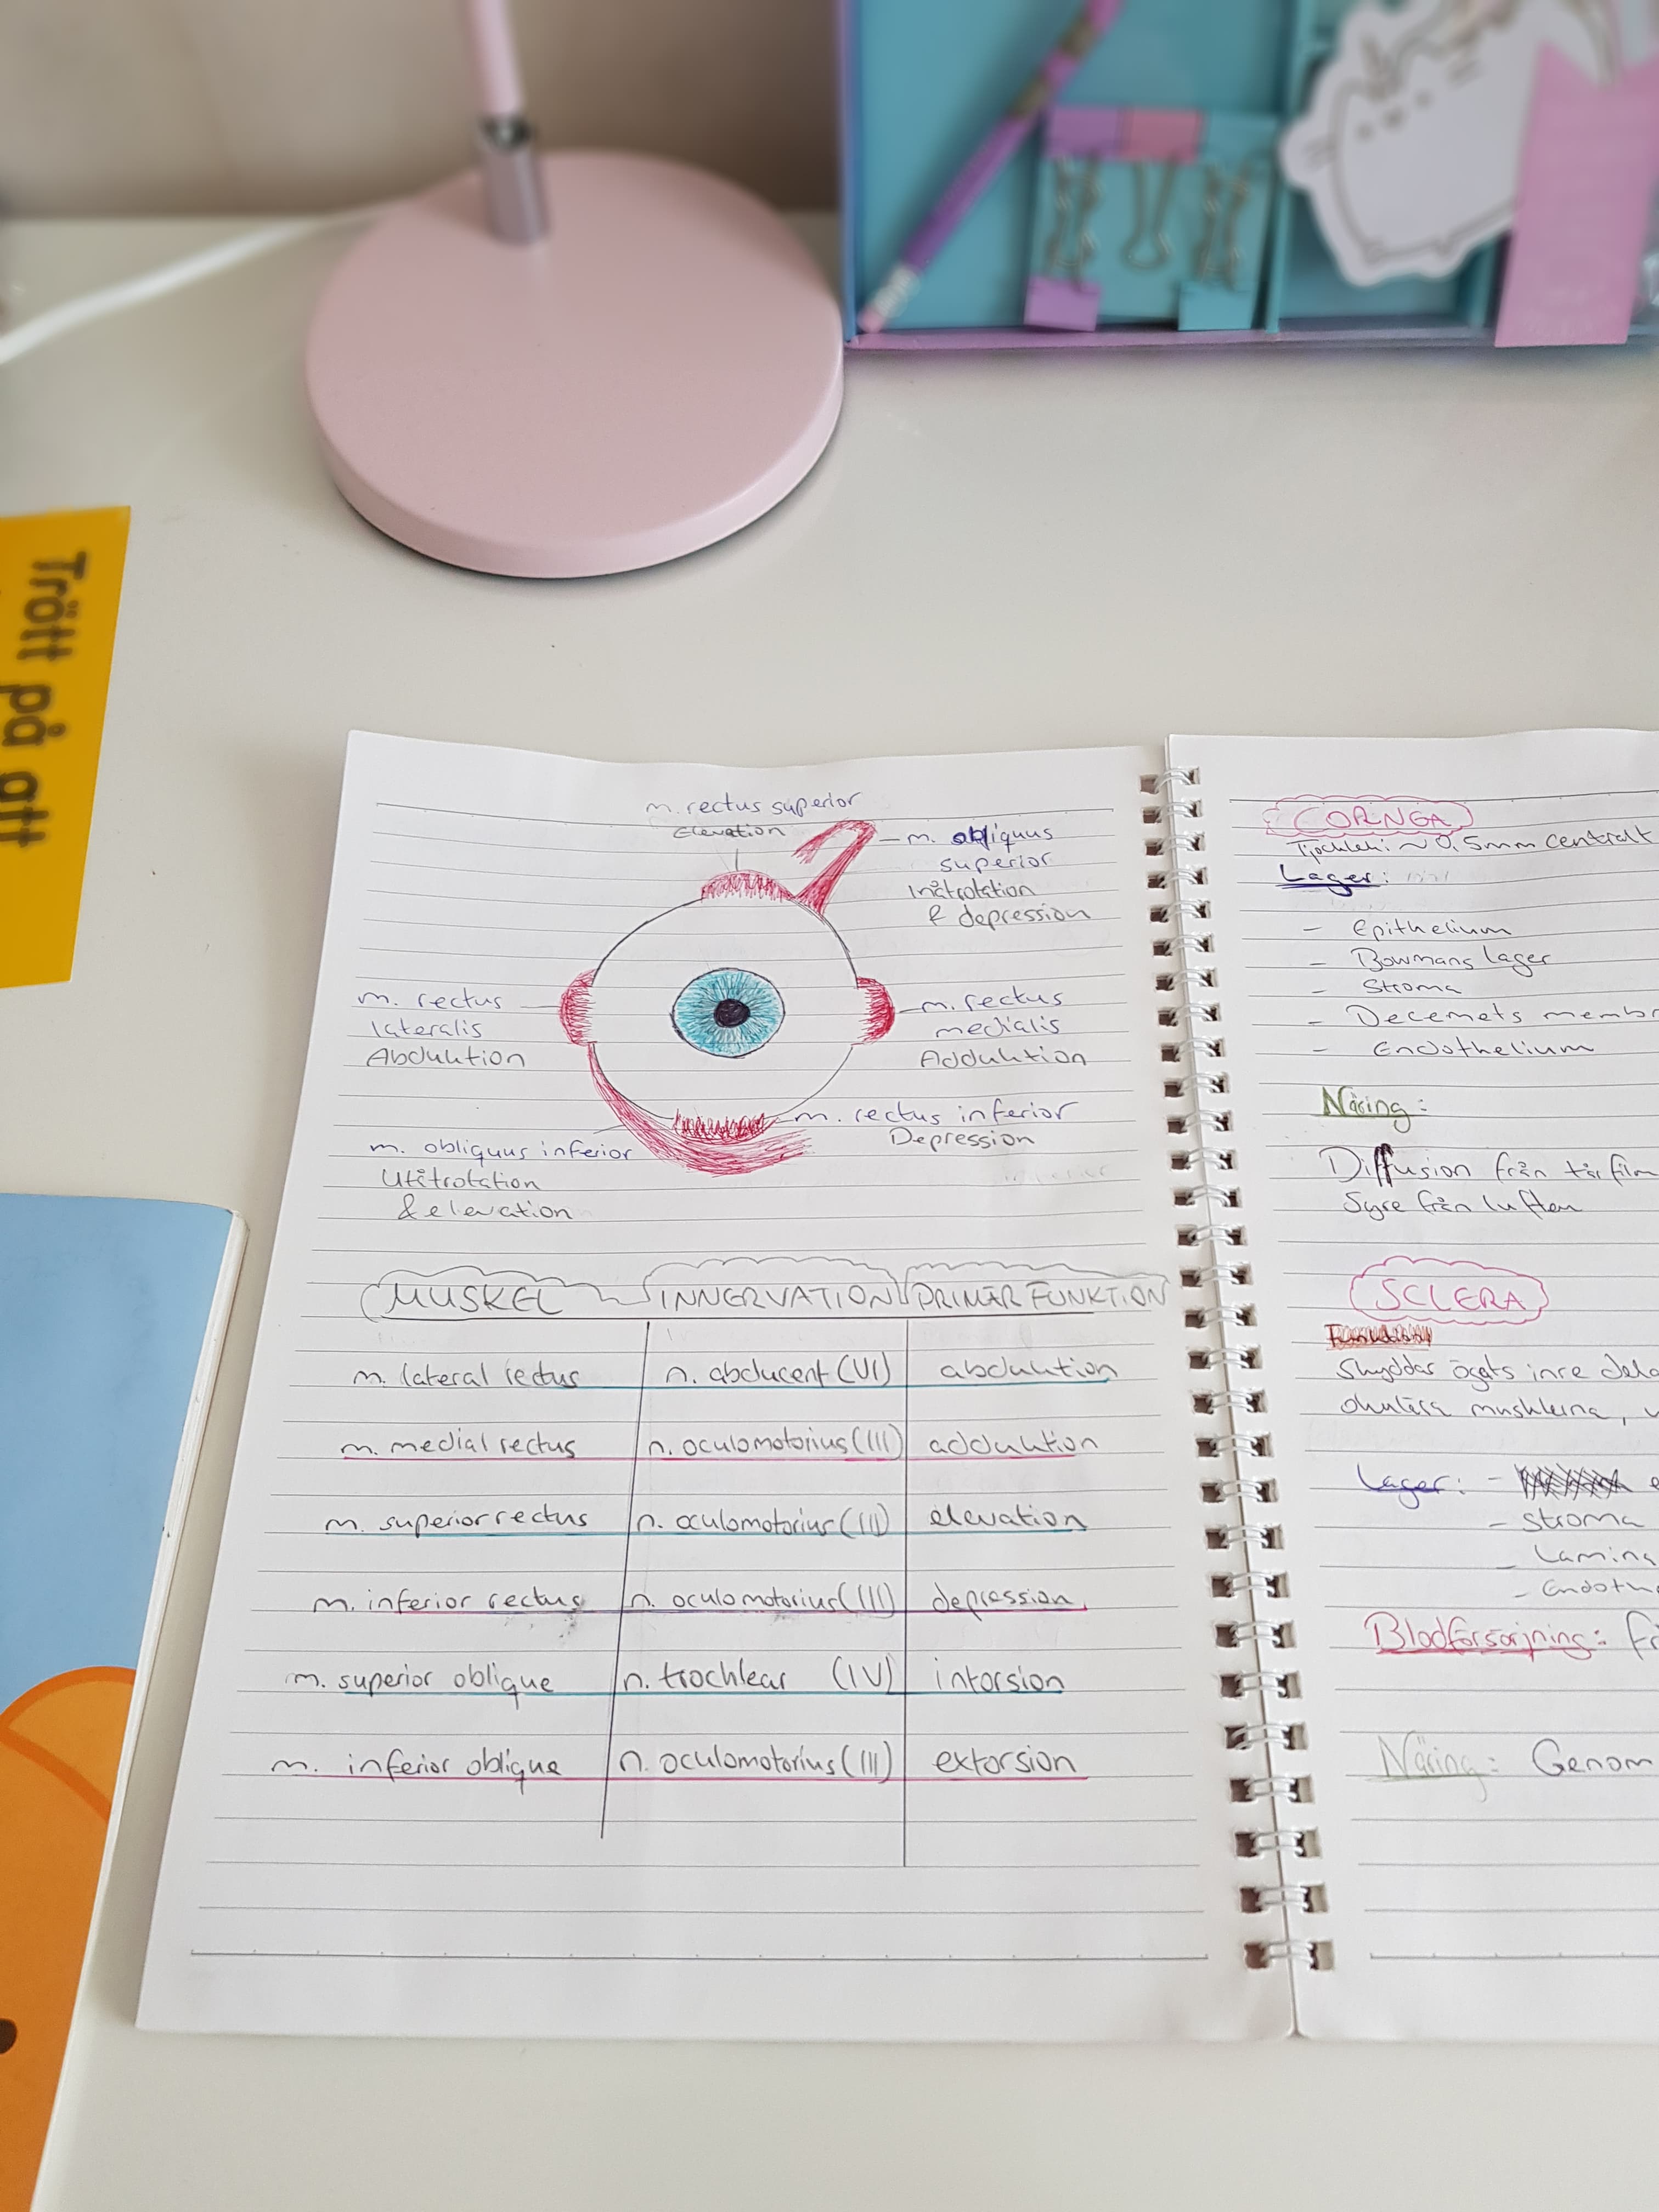 Trött
på att
m. rectus superior
Elevation
m. obliquus
superior
Inåtrotation
& depression
m. rectus
lateralis
Abduktion
m. rectus
medialis
Adduktion
m. rectus inferior
Depression
m. obliquus inferior
Utåtrotation
& elevation
MUSKEL INNERVATION PRIMÄR FUNKTION
m. lateral rectus n. abducent (VI) abduktion
m. medial rectus n. oculomotorius (III) adduktion
m. superior rectus n. oculomotorius (III) elevation
m. inferior rectus n. oculomotorius (III) depression
m. superior oblique n. trochlear (IV) intorsion
m. inferior oblique n. oculomotorius (III) extorsion
CORNEA
Tjocklek: ~ 0,5mm centralt
Lager:
- Epithelium
- Bowmans lager
- Stroma
- Decemets membr
- Endothelium
Näring:
Diffusion från tårfilm
Syre från luften
SCLERA
Skyddar ögats inre dela
okulära musklerna, v
Lager: -
- Stroma
- Lamina
- Endoth
Blodförsörjning: Fr
Näring: Genom